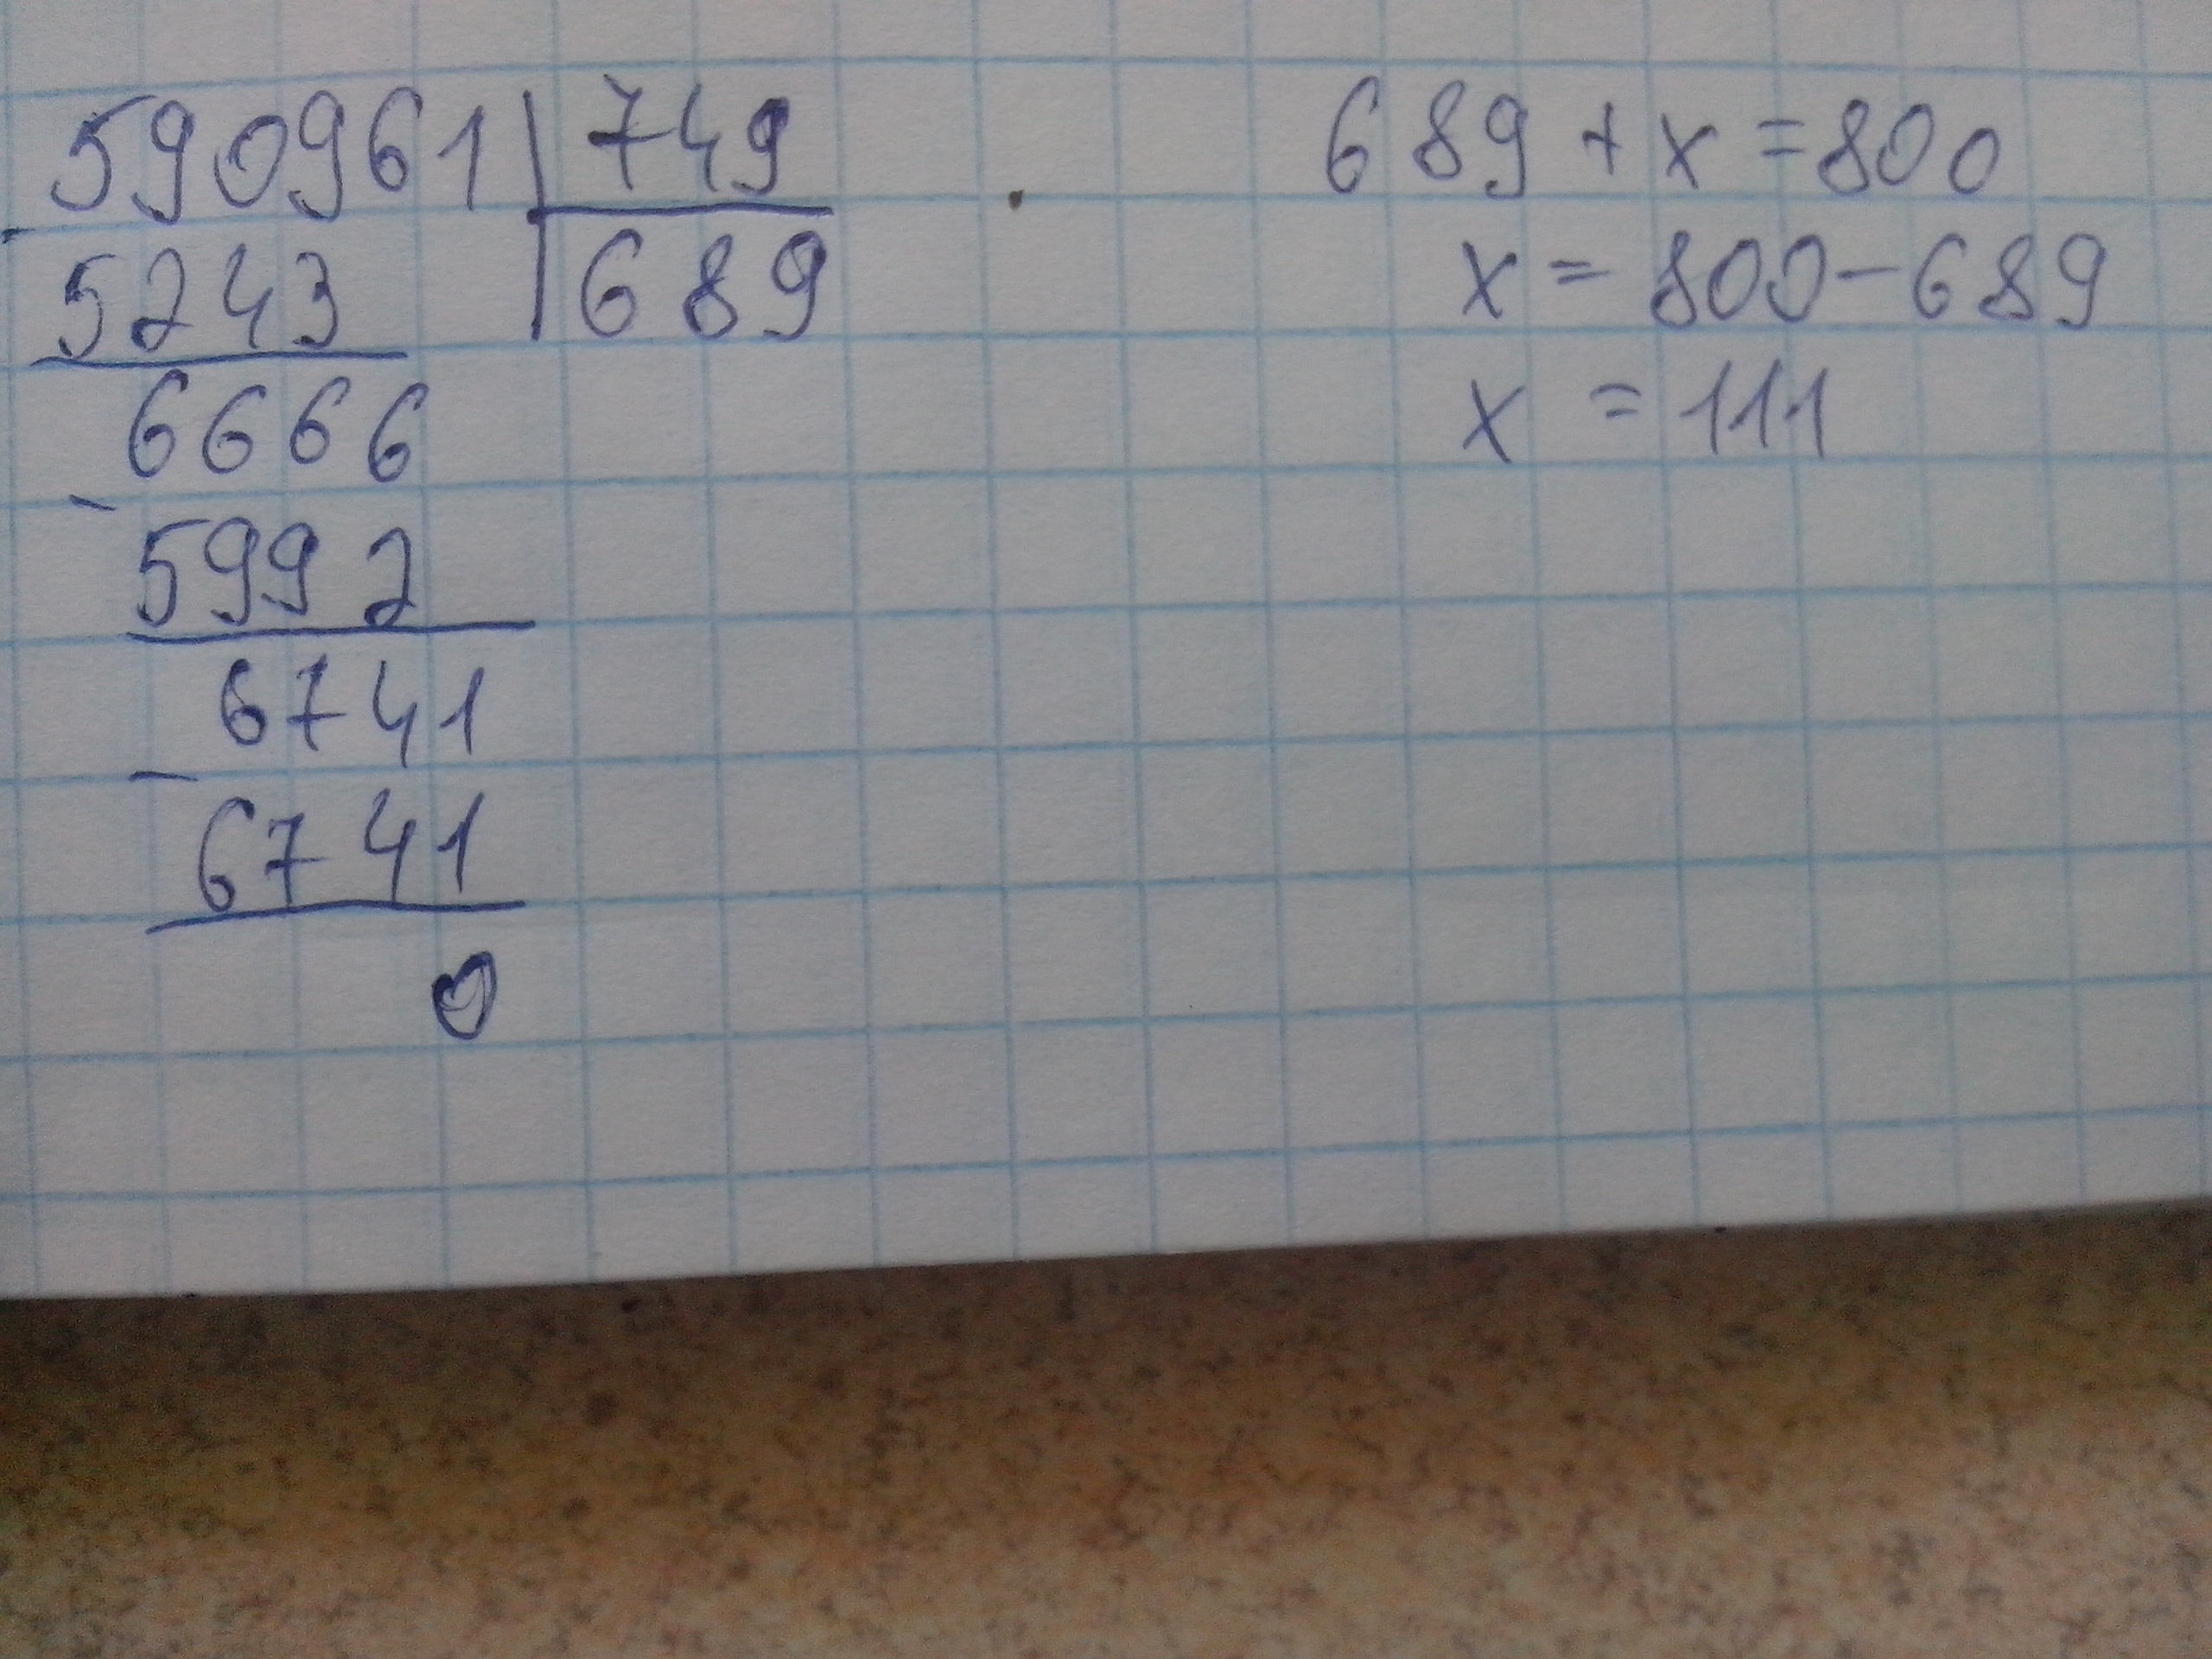 590961 749
- 5243 689
6666
- 5992
6741
- 6741
0
689 + x = 800
x = 800 - 689
x = 111